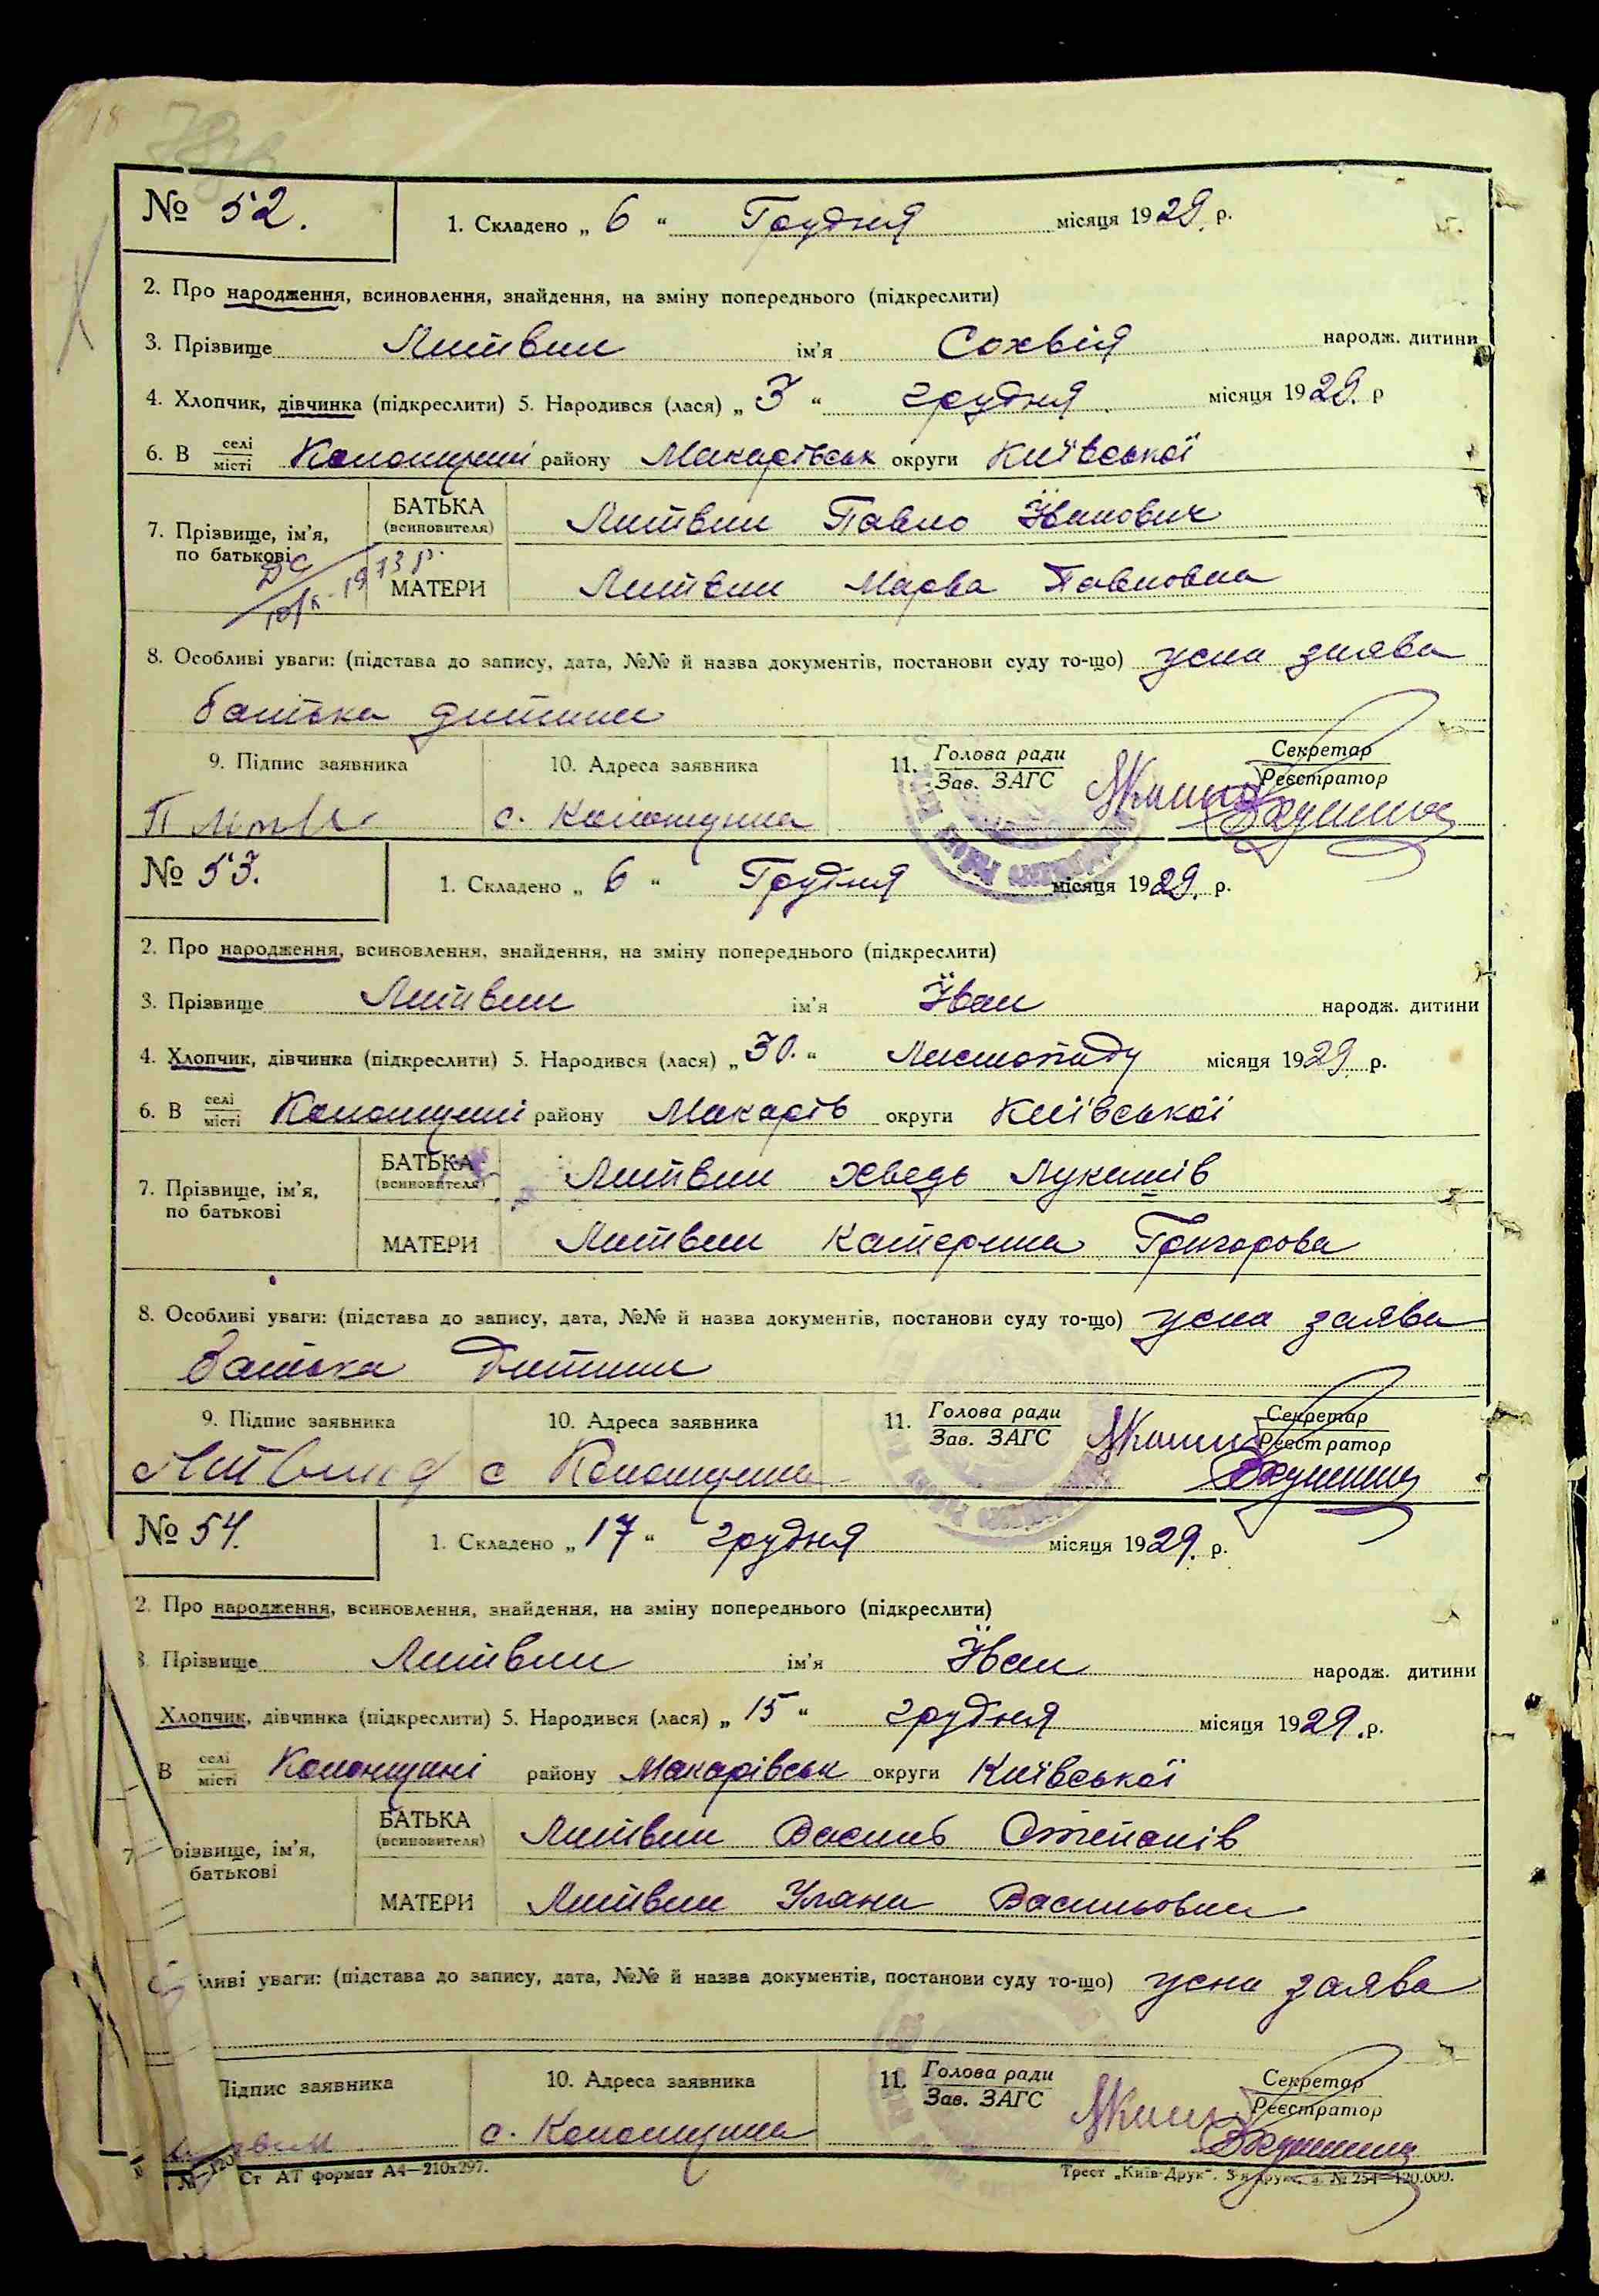 18
№ 52.
1. Складено „ 6 “ Грудня місяця 1929. р.
2. Про народження, всиновлення, знайдення, на зміну попереднього (підкреслити)
3. Прізвище Литвин ім'я Сохвія народж. дитини
4. Хлопчик, дівчинка (підкреслити) 5. Народився (лася) „ 3 “ грудня місяця 1929. р
6. В селі місті Колонщині району Макарівськ округи Київської
7. Прізвище, ім'я, по батькові
БАТЬКА (всиновителя) Литвин Павло Іванович
МАТЕРИ Литвин Марва Павловна
8. Особливі уваги: (підстава до запису, дата, №№ й назва документів, постанови суду то-що) усна заява
батька дитини
9. Підпис заявника 10. Адреса заявника 11. Голова ради Зав. ЗАГС Секретар Реєстратор
с. Колонщина
№ 53.
1. Складено „ 6 “ Грудня місяця 1929. р.
2. Про народження, всиновлення, знайдення, на зміну попереднього (підкреслити)
3. Прізвище Литвин ім'я Їван народж. дитини
4. Хлопчик, дівчинка (підкреслити) 5. Народився (лася) „ 30. “ Листопаду місяця 1929 р.
6. В селі місті Колонщині району Макарів округи Київської
7. Прізвище, ім'я, по батькові
БАТЬКА (всиновителя) Литвин Хведь Лукашів
МАТЕРИ Литвин Катерина Григорова
8. Особливі уваги: (підстава до запису, дата, №№ й назва документів, постанови суду то-що) усна заява
батька дитини
9. Підпис заявника 10. Адреса заявника 11. Голова ради Зав. ЗАГС Секретар Реєстратор
с Колонщина
№ 54.
1. Складено „ 17 “ грудня місяця 1929. р.
2. Про народження, всиновлення, знайдення, на зміну попереднього (підкреслити)
3. Прізвище Литвин ім'я Їван народж. дитини
Хлопчик, дівчинка (підкреслити) 5. Народився (лася) „ 15 “ грудня місяця 1929. р.
В селі місті Колонщині району Макарівськ округи Київської
7. різвище, ім'я, батькові
БАТЬКА (всиновителя) Литвин Василь Степанів
МАТЕРИ Литвин Уляна Васильовна
ливі уваги: (підстава до запису, дата, №№ й назва документів, постанови суду то-що) усна заява
Підпис заявника 10. Адреса заявника 11. Голова ради Зав. ЗАГС Секретар Реєстратор
с. Колонщина
Ст АТ формат А4—210х297.
Трест „Київ-Друк“. 3-я друк. з. № 254—120.000.